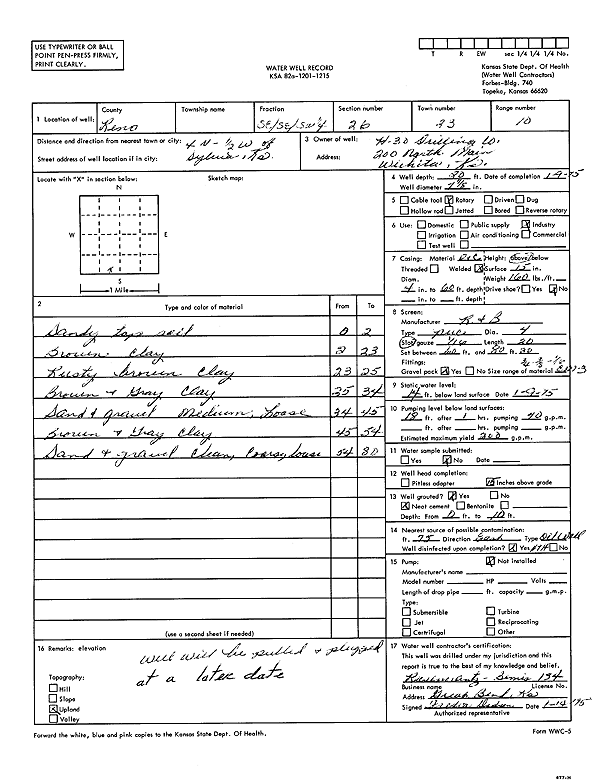 USE TYPEWRITER OR BALL
POINT PEN-PRESS FIRMLY,
PRINT CLEARLY.
WATER WELL RECORD
KSA 82a-1201-1215
T R EW sec 1/4 1/4 1/4 No.
Kansas State Dept. Of Health
(Water Well Contractors)
Forbes-Bldg. 740
Topeka, Kansas 66620
1 Location of well: County Reno Township name Fraction SE/SE/SW/4 Section number 26 Town number 23 Range number 10
Distance and direction from nearest town or city: 4 N - 1/2 W of
Street address of well location if in city: Sylvia, Ks.
3 Owner of well: H-30 Drilling Co.
Address: 200 North Main
Wichita, Ks.
Locate with "X" in section below: Sketch map:
N
W E
X
S
1 Mile
4 Well depth: 80 ft. Date of completion 1-9-75
Well diameter 7 7/8 in.
5 Cable tool X Rotary Driven Dug
Hollow rod Jetted Bored Reverse rotary
6 Use: Domestic Public supply X Industry
Irrigation Air conditioning Commercial
Test well
7 Casing: Material Height: Above/below
Threaded Welded X Surface 12 in.
Diam. Weight 160 lbs./ft.
4 in. to 60 ft. depth Drive shoe? Yes X No
in. to ft. depth
2 Type and color of material From To
Sandy top soil 0 2
Brown Clay 2 23
Rusty brown Clay 23 25
Brown & Gray Clay 25 34
Sand & gravel Medium, loose 34 45
Brown & Gray Clay 45 54
Sand & gravel Clean, Coarse, loose 54 80
(use a second sheet if needed)
8 Screen:
Manufacturer R & B
Type Dia. 4
Slot/gauze 1/16 Length 20
Set between 60 ft. and 80 ft.
Fittings:
Gravel pack X Yes No Size range of material
9 Static water level:
14 ft. below land surface Date 1-9-75
10 Pumping level below land surfaces:
18 ft. after 1 hrs. pumping 40 g.p.m.
ft. after hrs. pumping g.p.m.
Estimated maximum yield 200 g.p.m.
11 Water sample submitted:
Yes X No Date
12 Well head completion:
Pitless adapter inches above grade
13 Well grouted? X Yes No
X Neat cement Bentonite
Depth: From 0 ft. to 10 ft.
14 Nearest source of possible contamination:
ft. 75 Direction East Type Oil Well
Well disinfected upon completion? X Yes HTH No
15 Pump: X Not installed
Manufacturer's name
Model number HP Volts
Length of drop pipe ft. capacity g.m.p.
Type:
Submersible Turbine
Jet Reciprocating
Centrifugal Other
16 Remarks: elevation
well will be pulled & plugged
at a later date
Topography:
Hill
Slope
X Upland
Valley
17 Water well contractor's certification:
This well was drilled under my jurisdiction and this
report is true to the best of my knowledge and belief.
134
Business name License No.
Address Great Bend, Ks
Signed Date 1-14-75
Authorized representative
Forward the white, blue and pink copies to the Kansas State Dept. Of Health.
Form WWC-5